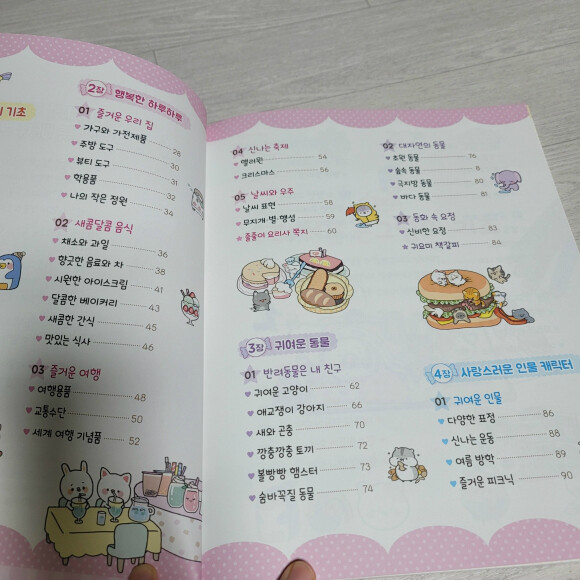 기초
2장 행복한 하루하루
01 즐거운 우리 집
♥ 가구와 가전제품 28
♥ 주방 도구 30
♥ 뷰티 도구 31
♥ 학용품 32
♥ 나의 작은 정원 34
02 새콤달콤 음식
♥ 채소와 과일 36
♥ 향긋한 음료와 차 38
♥ 시원한 아이스크림 41
♥ 달콤한 베이커리 43
♥ 새콤한 간식 45
♥ 맛있는 식사 46
03 즐거운 여행
♥ 여행용품 48
♥ 교통수단 50
♥ 세계 여행 기념품 52
04 신나는 축제
♥ 핼러윈 54
♥ 크리스마스 56
05 날씨와 우주
♥ 날씨 표현 58
♥ 무지개·별·행성 59
★ 돌돌이 요리사 쪽지 60
3장 귀여운 동물
01 반려동물은 내 친구
♥ 귀여운 고양이 62
♥ 애교쟁이 강아지 66
♥ 새와 곤충 70
♥ 깡충깡충 토끼 72
♥ 볼빵빵 햄스터 73
♥ 숨바꼭질 동물 74
02 대자연의 동물
♥ 초원 동물 76
♥ 숲속 동물 8
♥ 극지방 동물 80
♥ 바다 동물 81
03 동화 속 요정
♥ 신비한 요정 83
★ 귀요미 책갈피 84
4장 사랑스러운 인물 캐릭터
01 귀여운 인물
♥ 다양한 표정 86
♥ 신나는 운동 88
♥ 여름 방학 89
♥ 즐거운 피크닉 90